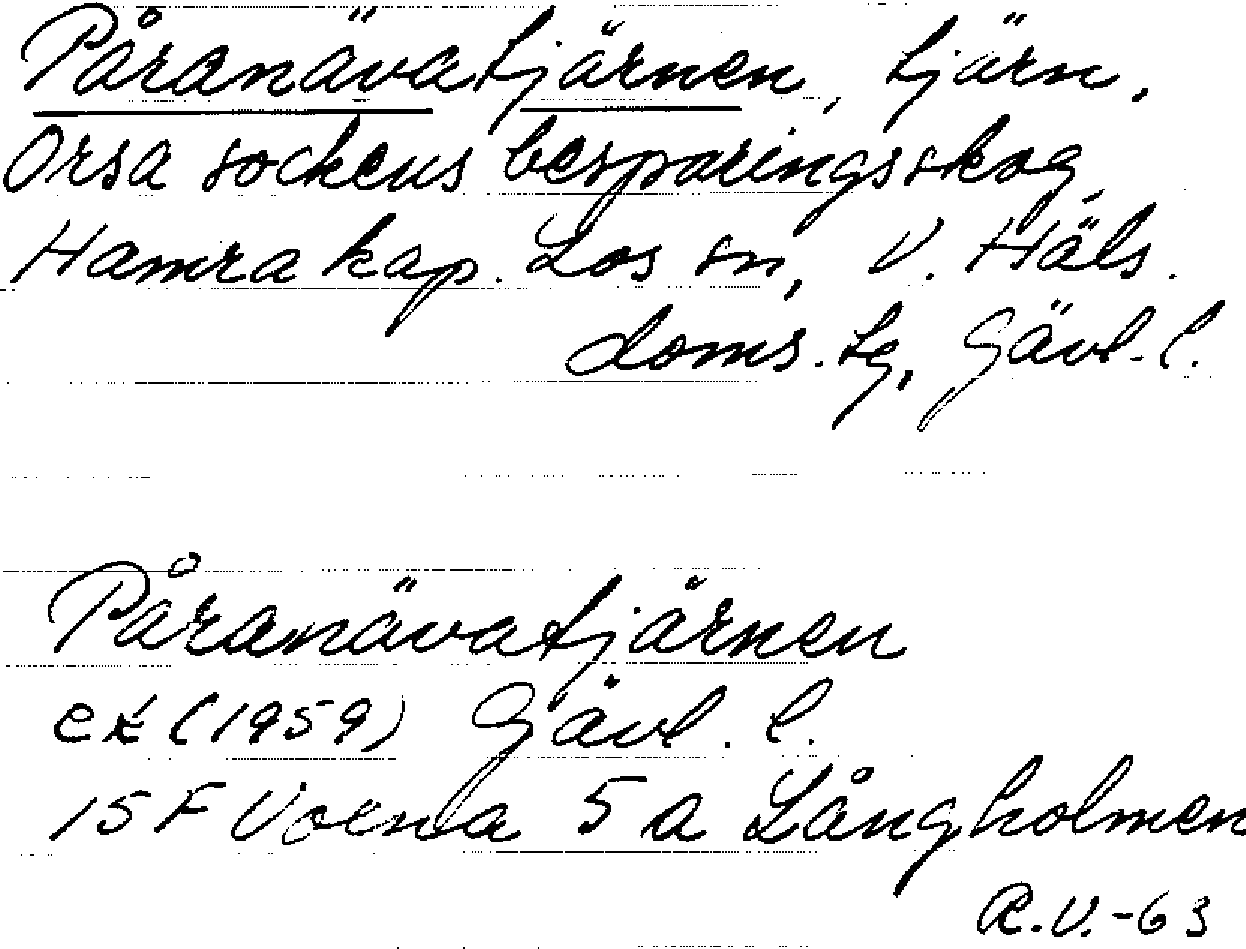 Påranävatjärnen, tjärn,
Orsa sockens besparingsskog,
Hamra kap. Los sn, V. Häls.
doms. tg, Gävl. l.
Påranävatjärnen
ek (1959) Gävl. l.
15 F Voxna 5 a Långholmen
R.V.-63